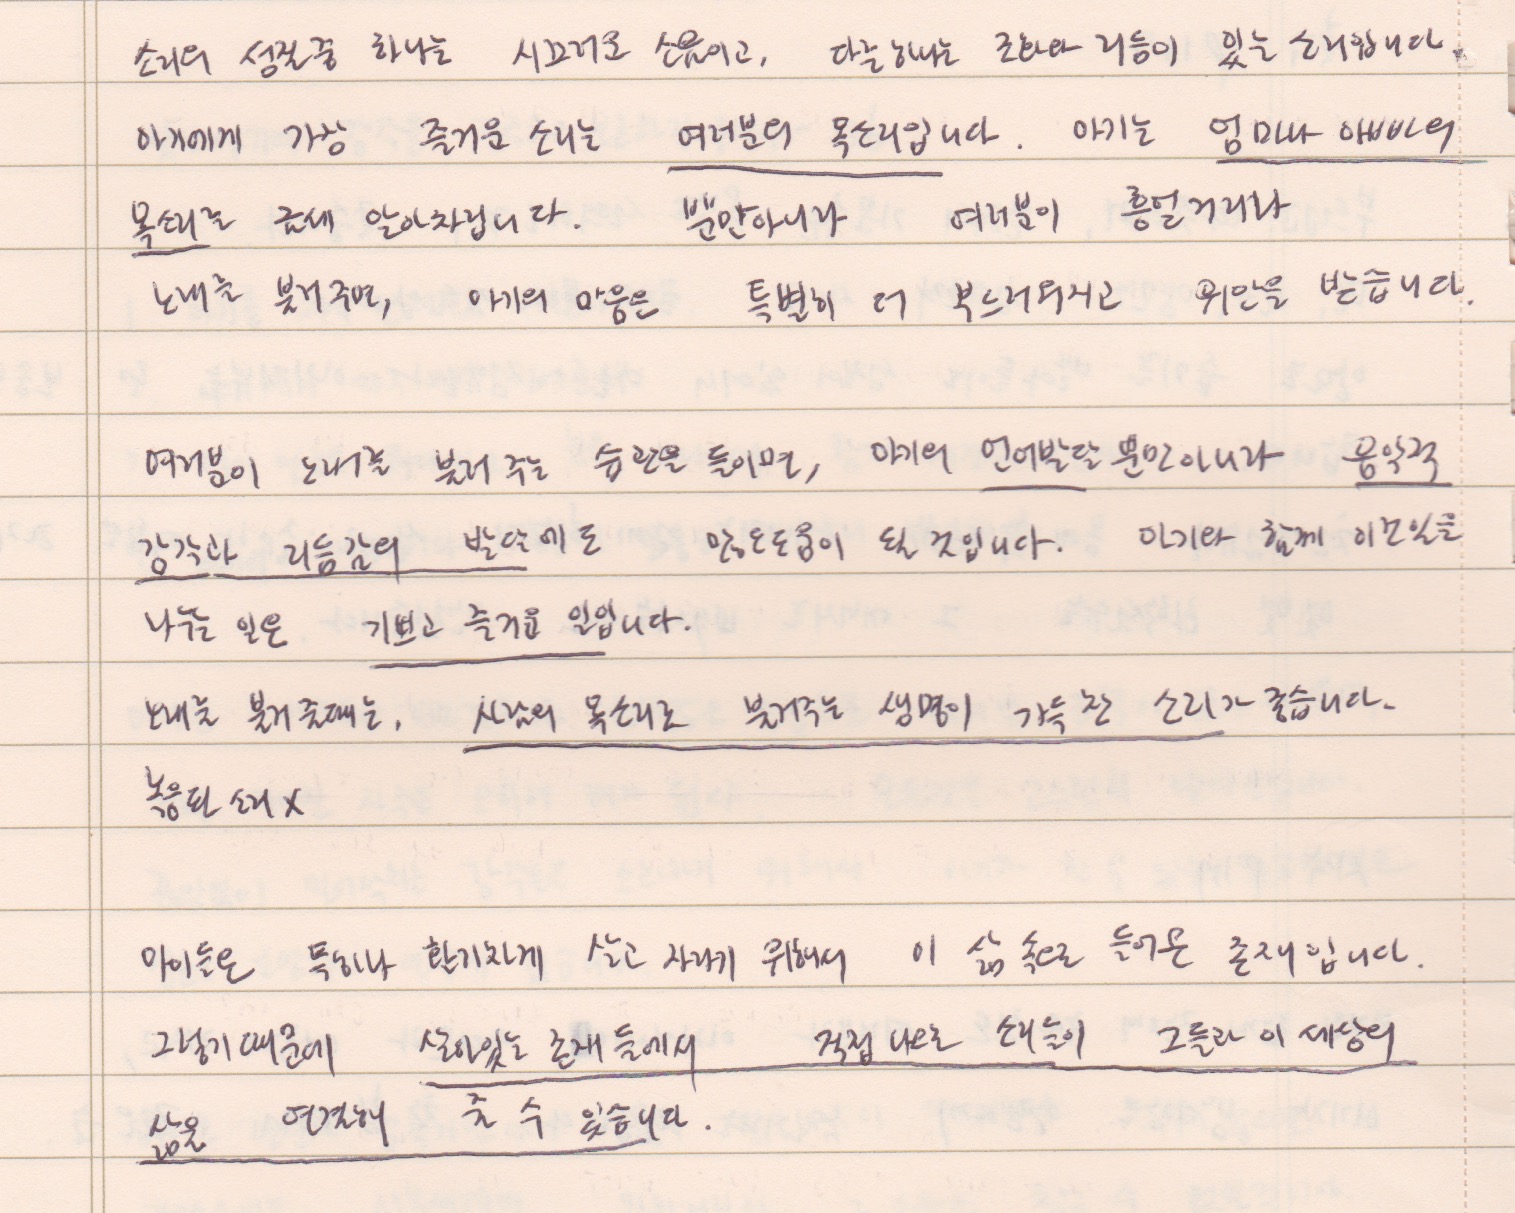 소리의 성질중 하나는 시끄러운 소음이고, 다른하나는 조화와 리듬이 있는 소리입니다.
아기에게 가장 즐거운 소리는 여러분의 목소리입니다. 아기는 엄마나 아빠의
목소리를 금세 알아차립니다. 뿐만아니라 여러분이 흥얼거리나
노래를 불러주면, 아기의 마음은 특별히 더 부드러워지고 위안을 받습니다.
여러분이 노래를 불러 주는 습관을 들이면, 아기의 언어발달 뿐만아니라 음악적
감각과 리듬감의 발달에도 많은도움이 될것입니다. 아기와 함께 이모일을
나누는 일은 기쁘고 즐거운 일입니다.
노래를 불러 줄때는, 사람의 목소리로 불러주는 생명이 가득찬 소리가 좋습니다.
녹음된 소리 X
아이들은 특히나 활기차게 살고 자라기 위해서 이 삶 속으로 들어온 존재입니다.
그렇기 때문에 살아있는 존재들에서 직접 나온 소리들이 그들과 이 세상의
삶을 연결해 줄 수 있습니다.